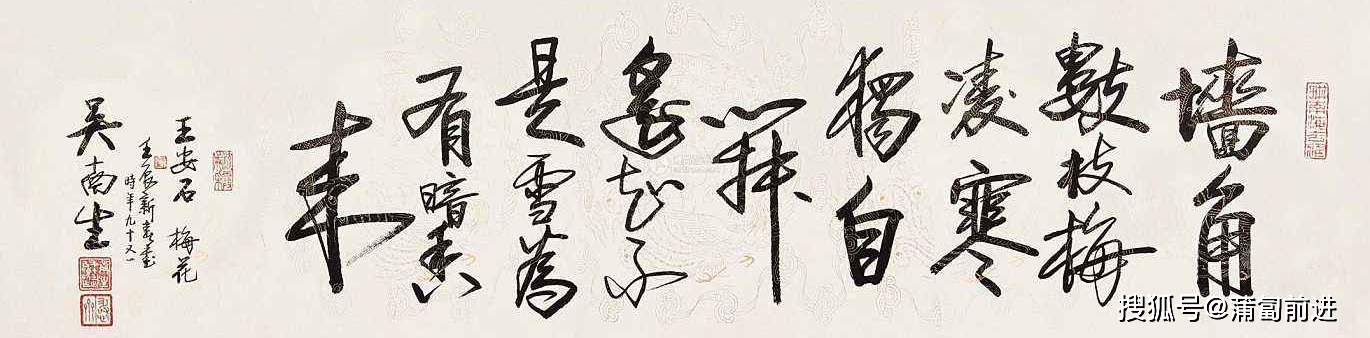 墙角
數枝梅
凌寒
獨自
開
遙知不
是雪為
有暗香
来
王安石 梅花
壬辰新春書
時年九十又一
吴南生
搜狐号@蒲匐前进